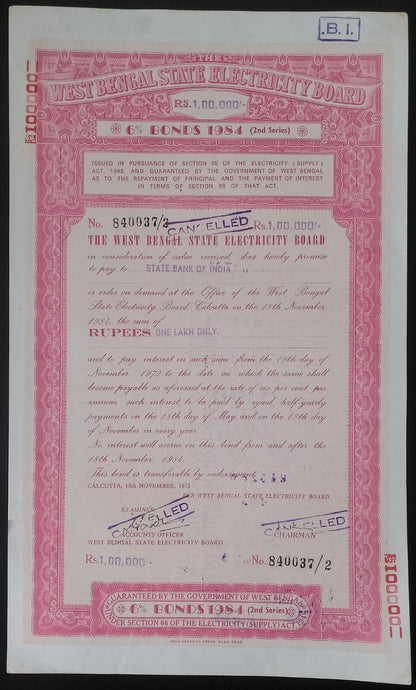 B. I.
THE
WEST BENGAL STATE ELECTRICITY BOARD
RS. 1,00,000/-
6% BONDS 1984 (2nd Series)
ISSUED IN PURSUANCE OF SECTION 65 OF THE ELECTRICITY (SUPPLY)
ACT, 1948, AND GUARANTEED BY THE GOVERNMENT OF WEST BENGAL
AS TO THE REPAYMENT OF PRINCIPAL AND THE PAYMENT OF INTEREST
IN TERMS OF SECTION 66 OF THAT ACT.
No. 840037/2 CANCELLED Rs. 1,00,000/-
THE WEST BENGAL STATE ELECTRICITY BOARD
in consideration of value received, does hereby promise
to pay to STATE BANK OF INDIA
or order on demand at the Office of the West Bengal
State Electricity Board, Calcutta on the 18th November,
1984, the sum of
RUPEES ONE LAKH ONLY.
and to pay interest on such sum from the 18th day of
November, 1972 to the date on which the same shall
become payable as aforesaid at the rate of six per cent per
annum, such interest to be paid by equal half-yearly
payments on the 18th day of May and on the 18th day
of November in every year.
No interest will accrue in this bond from and after the
18th November, 1984.
This bond is transferable by endorsement.
CALCUTTA, 18th NOVEMBER, 1972
FOR WEST BENGAL STATE ELECTRICITY BOARD
EXAMINED
CANCELLED
CANCELLED
ACCOUNTS OFFICER
CHAIRMAN
WEST BENGAL STATE ELECTRICITY BOARD
Rs. 1,00,000/- No. 840037/2
GUARANTEED BY THE GOVERNMENT OF WEST BENGAL
6% BONDS 1984 (2nd Series)
UNDER SECTION 66 OF THE ELECTRICITY (SUPPLY) ACT
INDIA SECURITY PRESS, NASIK ROAD